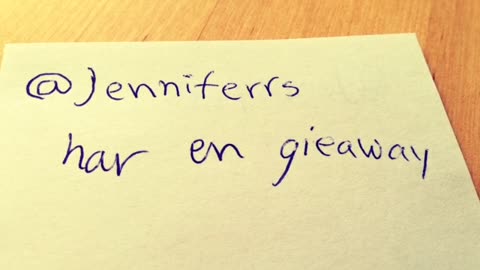 @Jenniferrs
har en gieaway